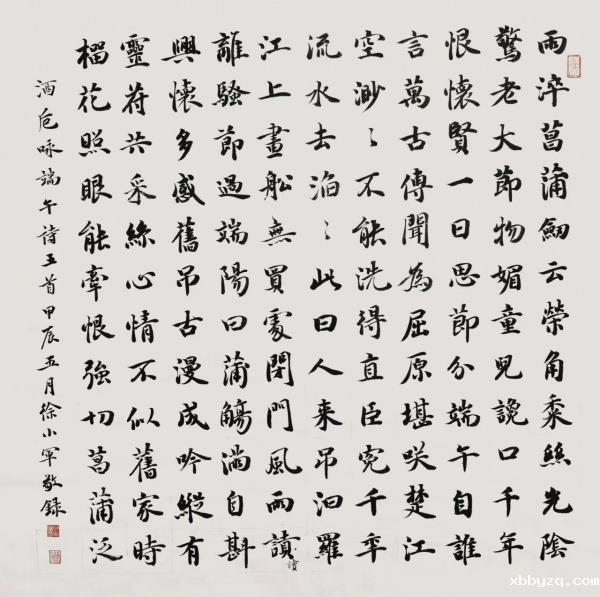 雨淬菖蒲劒云榮角黍絲光陰
驚老大節物媚童兒讒口千年
恨懷賢一日思節分端午自誰
言萬古傳聞為屈原堪咲楚江
空渺〻不能洗得直臣寃千秊
流水去滔〻此日人來吊汨羅
江上畫船無買處閉門風雨讀
讀
離騷節過端陽日蒲觴滿自斟
興懷多感舊吊古漫成吟縱有
靈符共采絲心情不似舊家時
榴花照眼能牽恨強切菖蒲泛
酒卮咏端午詩五首甲辰五月徐小軍敬録
xbbyzq.com